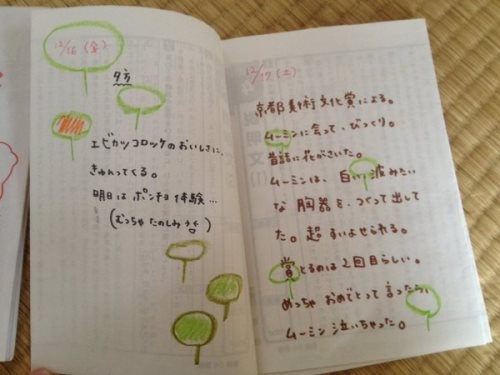 12/16 (金)
夕方
エビカツコロッケのおいしさに、
きゅんってくる。
明日は ポンチョ体験…
(むっちゃたのしみ
12/17 (土)
京都美術文化賞による。
ムーミンに会って、びっくり。
昔話に花がさいた。
ムーミンは、白い波みたい
な 陶器を、つくって出して
た。超 すいよせられる。
賞とるのは2回目らしい。
めっちゃ おめでとって 言ったら、
ムーミン泣いちゃった。